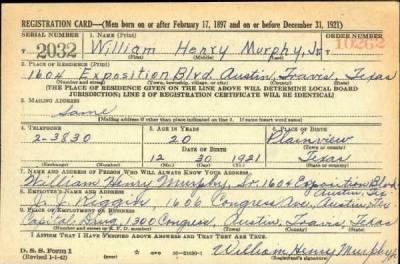 REGISTRATION CARD—(Men born on or after February 17, 1897 and on or before December 31, 1921)
SERIAL NUMBER 1. NAME (Print) ORDER NUMBER
T 2032 William Henry Murphy, Jr. 10262
(First) (Middle) (Last)
2. PLACE OF RESIDENCE (Print)
1604 Exposition Blvd. Austin, Travis, Texas
(Number and street) (Town, township, village, or city) (County) (State)
[THE PLACE OF RESIDENCE GIVEN ON THE LINE ABOVE WILL DETERMINE LOCAL BOARD
JURISDICTION; LINE 2 OF REGISTRATION CERTIFICATE WILL BE IDENTICAL]
3. MAILING ADDRESS
Same
[Mailing address if other than place indicated on line 2. If same insert word same]
4. TELEPHONE 5. AGE IN YEARS 6. PLACE OF BIRTH
2-3830 20 Plainview
DATE OF BIRTH (Town or county)
12 30 1921 Texas
(Exchange) (Number) (Mo.) (Day) (Yr.) (State or country)
7. NAME AND ADDRESS OF PERSON WHO WILL ALWAYS KNOW YOUR ADDRESS
William Henry Murphy, Sr. 1604 Exposition Blvd
Austin, Tex
8. EMPLOYER'S NAME AND ADDRESS
1606 Congress Ave, Austin, Tex
9. PLACE OF EMPLOYMENT OR BUSINESS
Capital Drug, 1300 Congress, Austin, Travis, Texas
(Number and street or R. F. D. number) (Town) (County) (State)
I AFFIRM THAT I HAVE VERIFIED ABOVE ANSWERS AND THAT THEY ARE TRUE.
D. S. S. Form 1
(Revised 1-1-42) (over) 16—21630-1 William Henry Murphy Jr
(Registrant's signature)